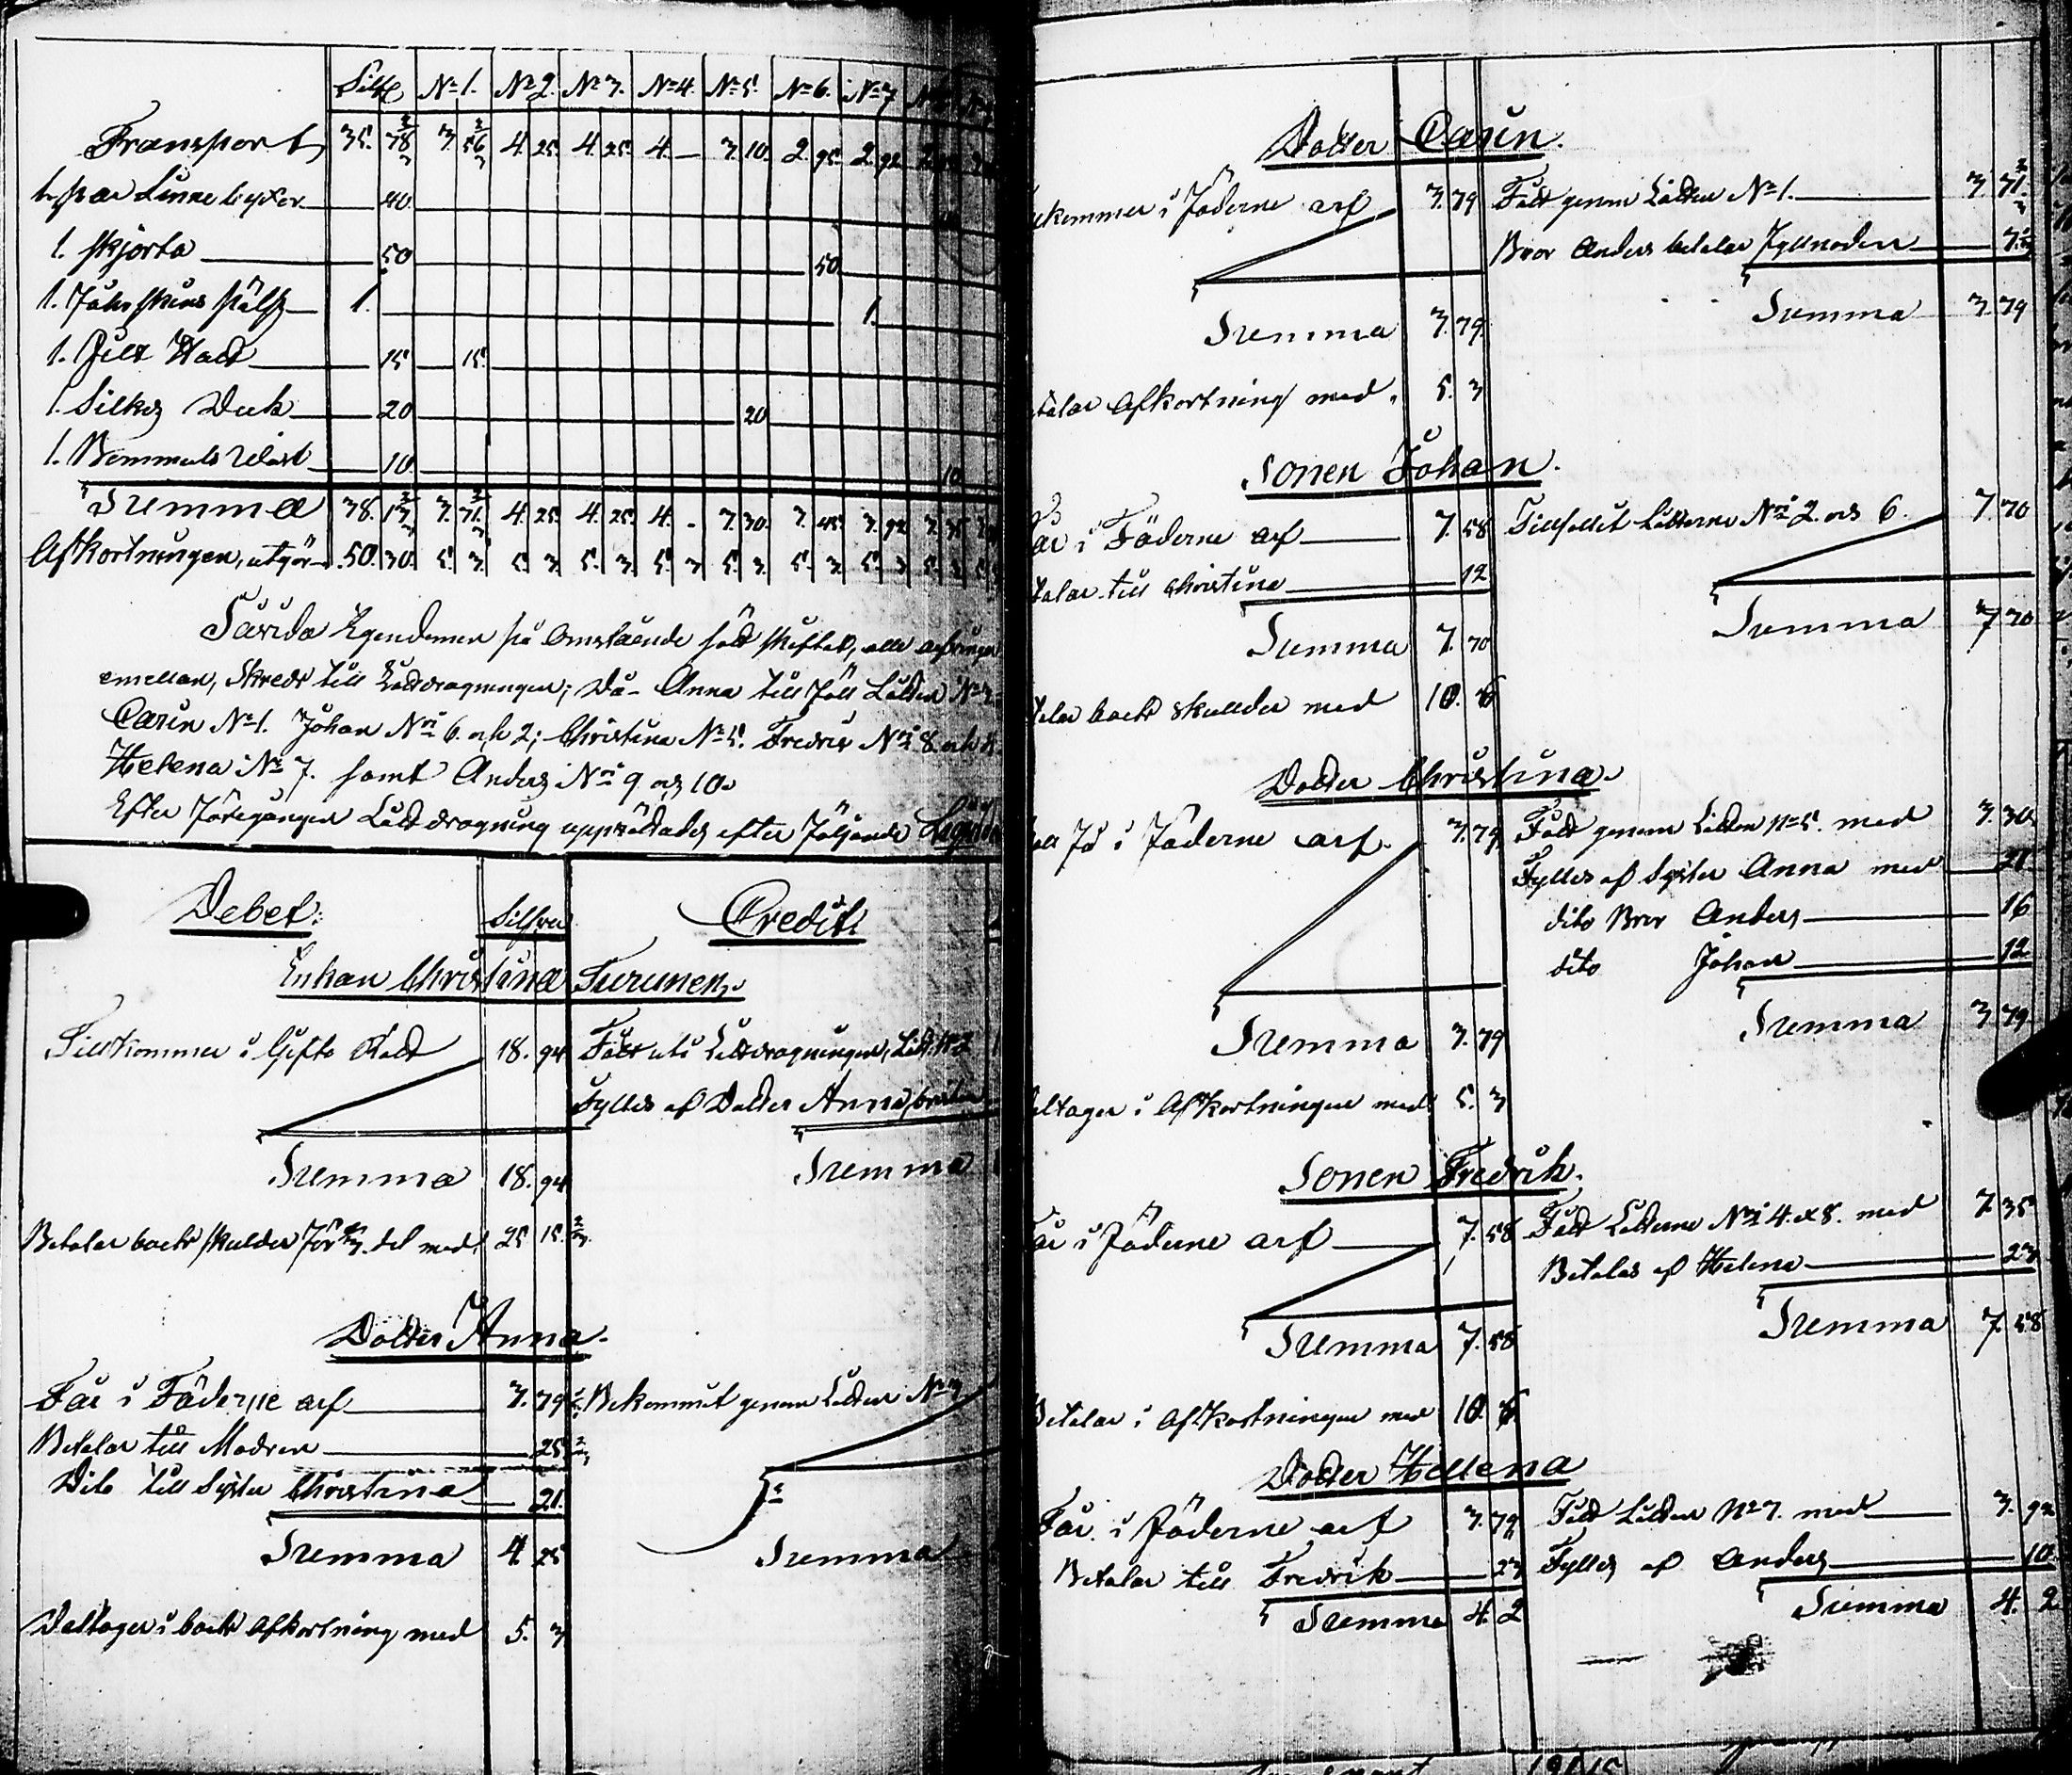 Silfv. N:o 1. N:o 2. N:o 3. N:o 4. N:o 5. N:o 6. N:o 7
Transport 35. 78 2/3 3 56 2/3 4. 25. 4. 25. 4. — 3. 10. 2. 95. 2. 92
1. par Linne 40.
1. skjorta 50 50
1. Fåhrskins päls 1. 1.
1. Filt Hatt 15 15.
1. Silkes Duk 20 20
1. Bommuls Väst 10. 10
Summa 38. 13 2/3 3. 71 2/3 4. 25. 4. 25. 4. - 3. 30. 3. 45. 3. 92 3. 35
Afkortningen, utgör 50. 30. 5. 3. 5. 3. 5. 3. 5. 3 5. 3. 5. 3. 5. 3 5. 3
Sedan Egendomen på Omstående sätt skiftats, alla arfvingar
emellan, Skreds till Lottdragningen; Då Anna tillföll Lotten N:o 3.
Carin N:o 1. Johan N:ri 6. och 2; Christina N:o 5. Fredric N:ri 8. och 4.
Helena N:o 7. samt Anders N:ri 9. och 10.
Efter föregången Lottdragning upprättades efter följande
Debet. Silfver Credit.
Enkan Christina Turunen.
Tillkommer i Gifto Rätt 18. 94 Fått uti Lottdragningen, Lott.
Fylles af Dotter Anna
Summa 18. 94 Summa
Betalar boets skulder för 1/3 del med 25 15. 2/3
Dotter Anna.
Får i Fäderne arf 3. 79 Bekommit genom Lotten N:o 3
Betalar till Modren 25
Dito till Syster Christina 21.
Summa 4 25 Summa
Deltager i boets Afkortning med 5. 3
Dotter Carin.
Bekommer i Fäderne arf 3. 79 Fått genom Lotten N:o 1. 3 71 2/3
Bror Anders betalar fyllnaden 7 1/3
Summa 3. 79. Summa 3. 79
Betalar Afkortning med. 5. 3
Sonen Johan.
Får i Fäderne arf 7. 58 Tillfallit Lotterne N:ri 2. och 6. 7. 70
Betalar till Christina 12
Summa 7. 70 Summa 7 70
Betalar boets skullder med 10. 6
Dotter Christina.
i Fäderne arf. 3. 79 Fått genom Lotten N:o 5. med 3. 30.
Fylles af Syster Anna med 21
dito Bror Anders 16
dito Johan 12
Summa 3. 79 Summa 3 79
Deltager i Afkortningen med 5. 3
Sonen Fredrik.
Får i Fäderne arf 7. 58 Fått Lotterne N:ri 4. & 8. med 7. 35
Betalas af Helena 23
Summa 7. 58 Summa 7. 58
Betalar i Afkortningen med 10. 6.
Dotter Hellena
Får i Fäderne arf 3. 79 Fått Lotten N:o 7. med 3. 92
Betalar till Fredrik 23 Fylles af Anders 10
Summa 4. 2 Summa 4. 2